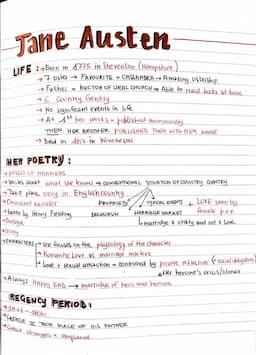 JANE AUSTEN
LIFE: → Born in 1775 in Steventon (Hampshire)
→ 7 sister → FAVOURITE = CASSANDRA → Amazing sistership
→ Father = RECTOR OF LOCAL CHURCH → Able to read books at home
→ Country Gentry
→ No significant events in life
→ At 1st her works = published anonymously
THEN HER BROTHER PUBLISHED THEM WITH HER NAME
→ Died in 1817 in Winchester
HER POETRY:
→ NOVELS OF MANNERS
→ Writes about what she knows → CONVENTIONAL SITUATION OF COUNTRY GENTRY
→ Take place only in English country
PROPERTY TYPICAL EVENTS + LOVE seen by
→ Omniscient narrator
→ taken by Henry Fielding MARRIAGE MARKET female pov
→ Dialogue marriage x utility and not x love
→ Irony
→ CHARACTERS → She focuses on the psychology of the character
→ Romantic Love vs marriage market
→ Love + sexual attraction = controlled by private reflection
after heroine's crisis/climax
→ Always HAPPY END → marriage of hero and heroine
REGENCY PERIOD:
→ GEORGE TOOK PLACE OF HIS FATHER
→ Great changes x England